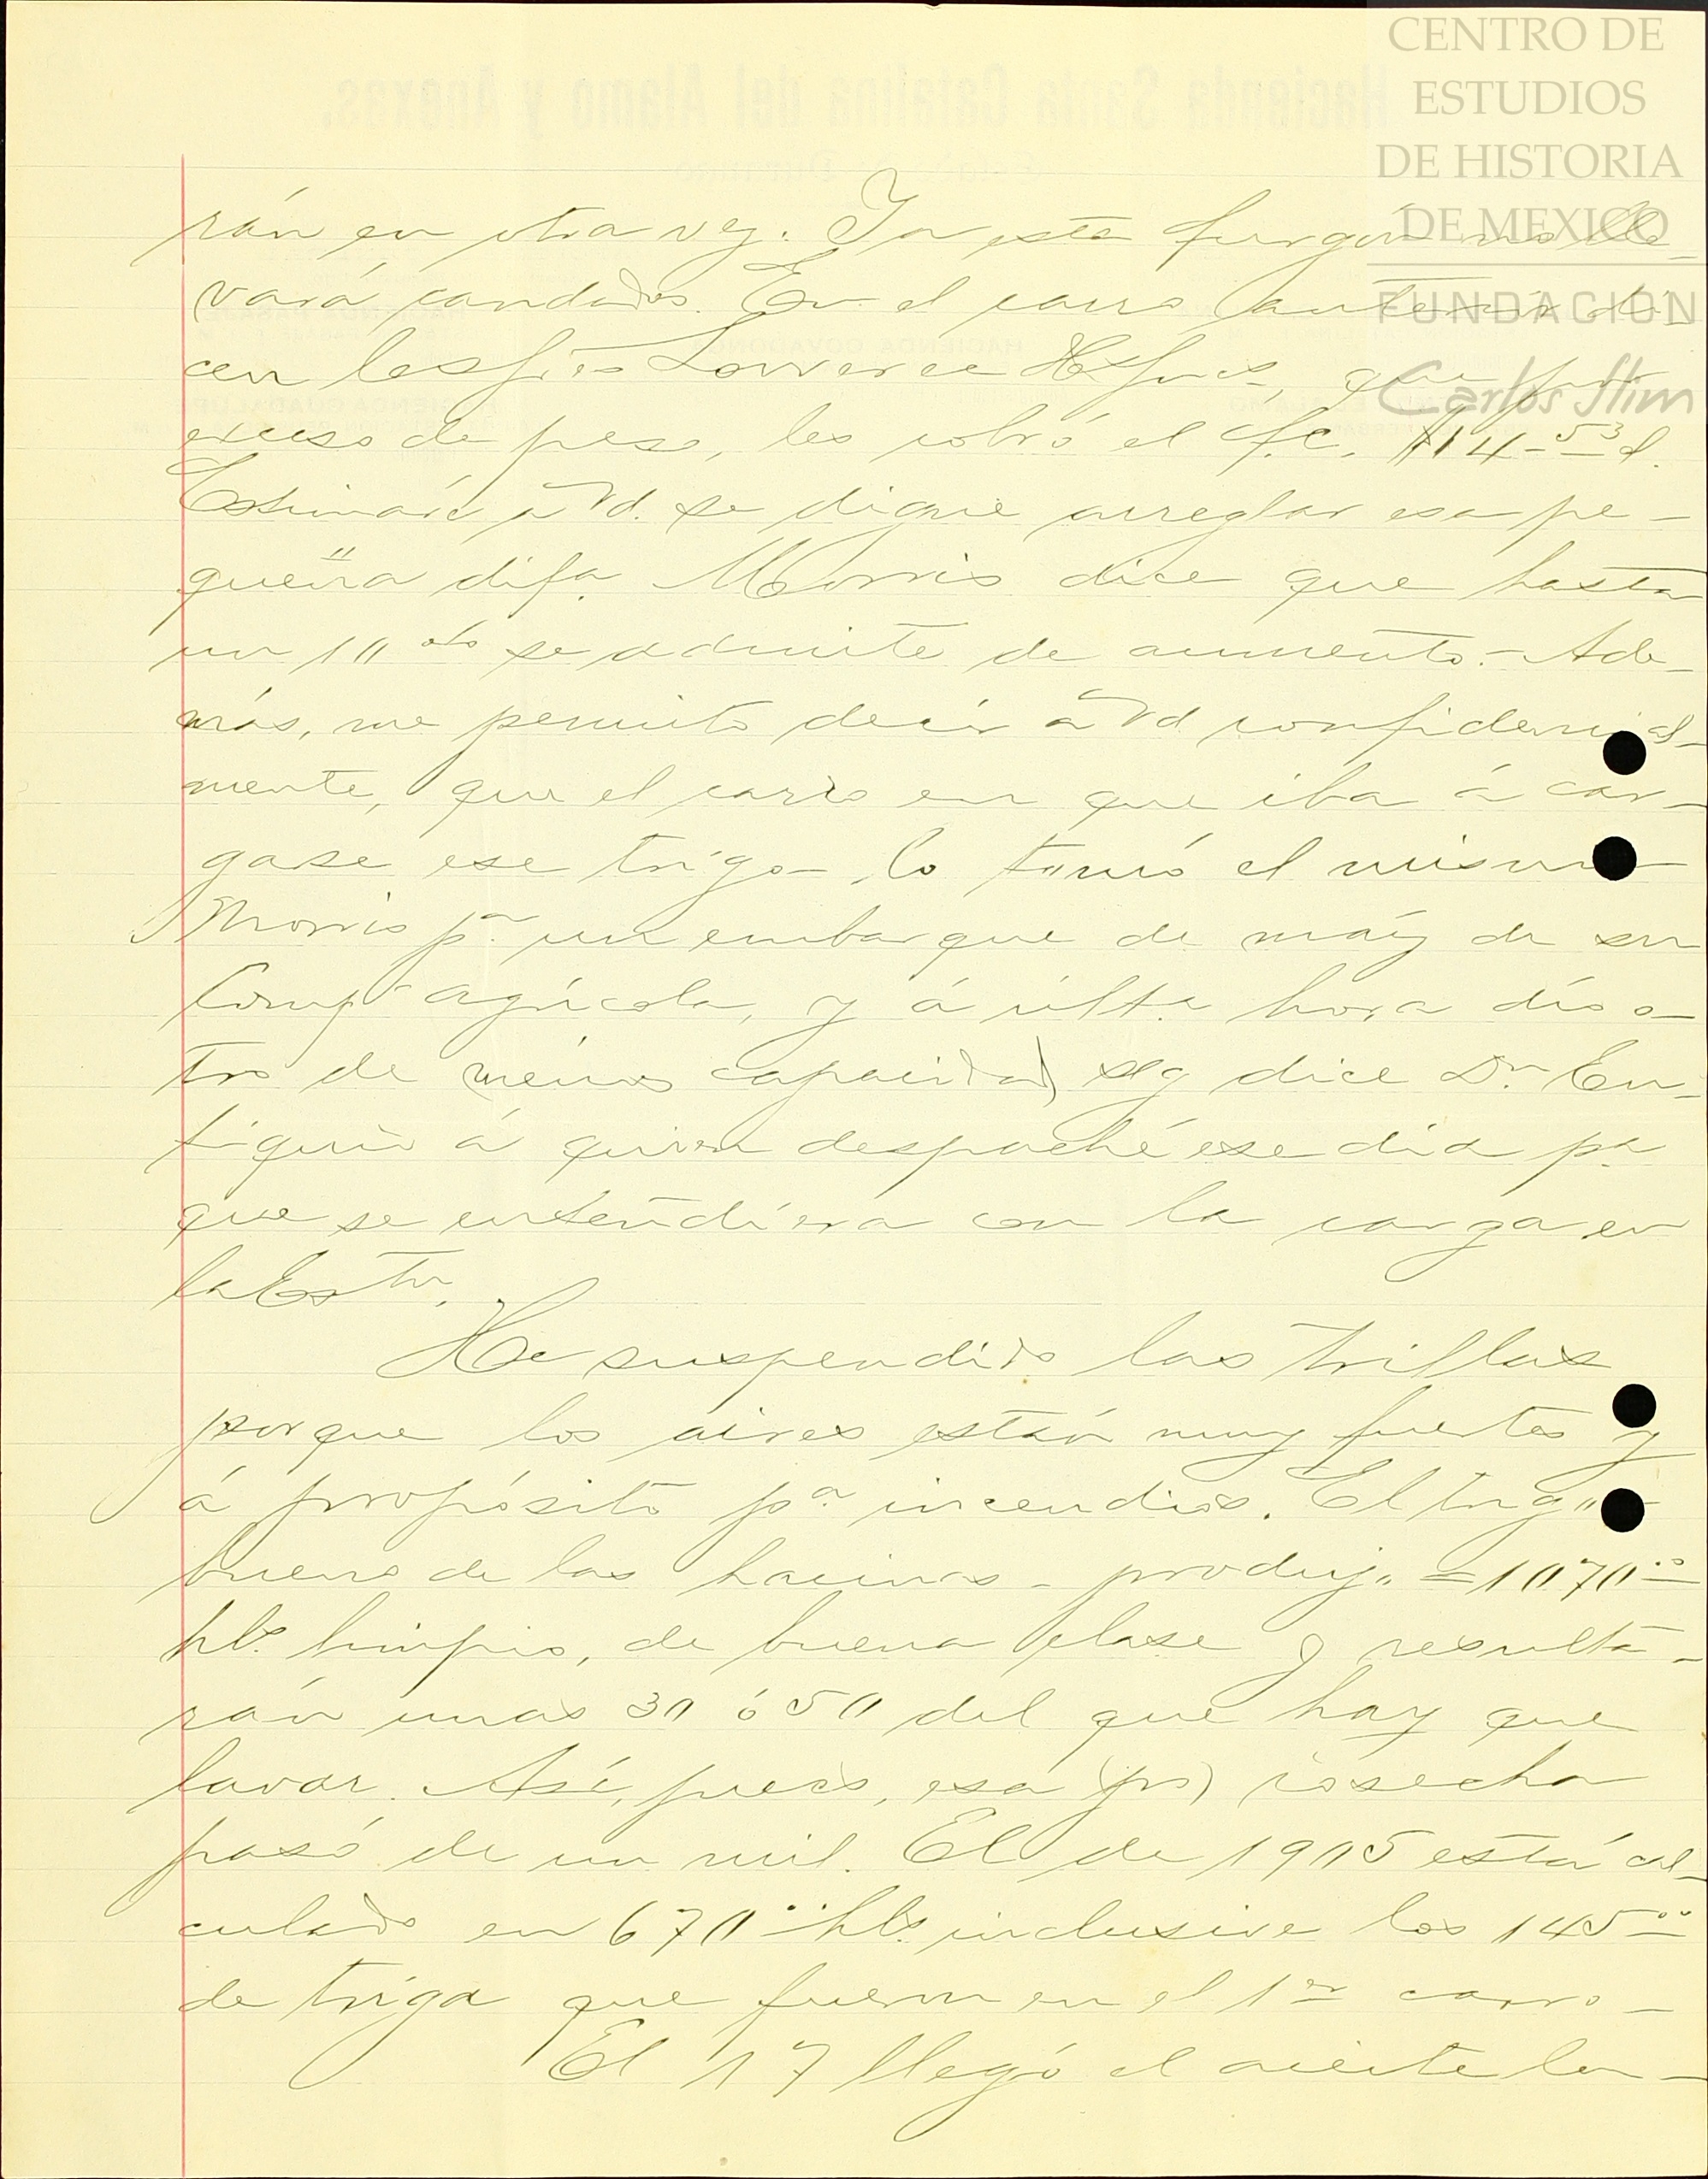 CENTRO DE
ESTUDIOS
DE HISTORIA
DE MEXICO
FUNDACIÓN
Carlos Slim
Hacienda Santa Catalina del Alamo y Anexas.
rán en otra vez. Ya este furgón no lle-
vará candados. En el carro anterior di-
cen los Sres Lawrence que por
exceso de peso, les cobró el f.c. $14-53 d.
Estimaré a Vd. se digne arreglar esa pe-
queña difa. Morris dice que hasta
un 10 o/o se admite de aumento.- Ade-
más, me permito decir a Vd confidencial-
mente, que el carro en que iba á car-
garse ese trigo- lo tomó el mismo
Morris pa. un embarque de maíz de su
Compa agrícola, y á últa hora dió o-
tro de menos capacidad sg dice Dn Eu-
tiquio á quien despaché ese día pa
que se entendiera con la carga en
la Estn.
He suspendido las trillas
porque los aires están muy fuertes y
á propósito pa incendios. El trigo
bueno de las hacinas - produjo = 1070..
hls limpio, de buena clase y resulta-
rán unas 30 ó 50 del que hay que
lavar. Así, pues, esa cosecha
pasó de un mil. El de 1905 está cal-
culado en 670.. hls. inclusive los 145..
de triga que fueron en el 1er carro-
El 17 llegó el aceite lu-